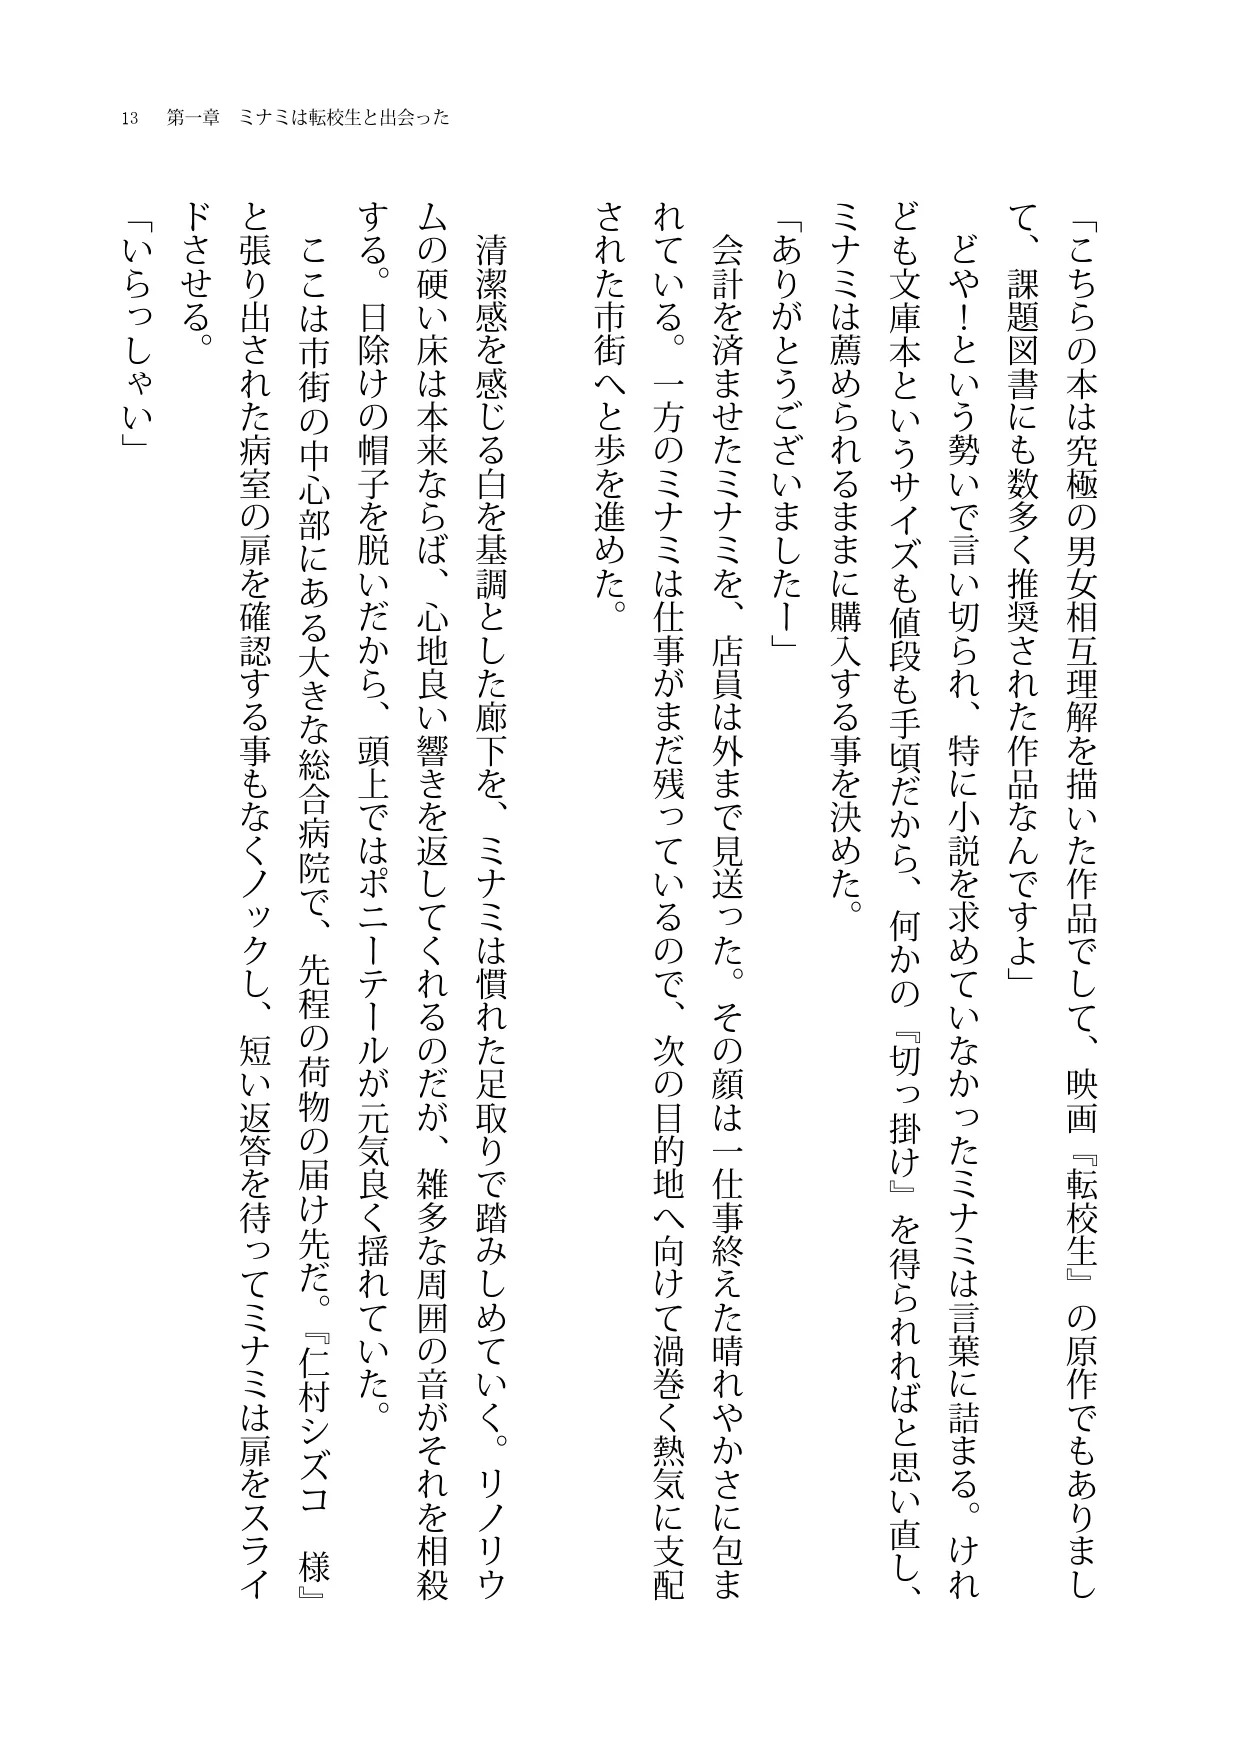 13　第一章　ミナミは転校生と出会った
「こちらの本は究極の男女相互理解を描いた作品でして、映画『転校生』の原作でもありまし
て、課題図書にも数多く推奨された作品なんですよ」
　どや！という勢いで言い切られ、特に小説を求めていなかったミナミは言葉に詰まる。けれ
ども文庫本というサイズも値段も手頃だから、何かの『切っ掛け』を得られればと思い直し、
ミナミは薦められるままに購入する事を決めた。
「ありがとうございましたー」
　会計を済ませたミナミを、店員は外まで見送った。その顔は一仕事終えた晴れやかさに包ま
れている。一方のミナミは仕事がまだ残っているので、次の目的地へ向けて渦巻く熱気に支配
された市街へと歩を進めた。
　清潔感を感じる白を基調とした廊下を、ミナミは慣れた足取りで踏みしめていく。リノリウ
ムの硬い床は本来ならば、心地良い響きを返してくれるのだが、雑多な周囲の音がそれを相殺
する。日除けの帽子を脱いだから、頭上ではポニーテールが元気良く揺れていた。
　ここは市街の中心部にある大きな総合病院で、先程の荷物の届け先だ。『仁村シズコ　様』
と張り出された病室の扉を確認する事もなくノックし、短い返答を待ってミナミは扉をスライ
ドさせる。
「いらっしゃい」